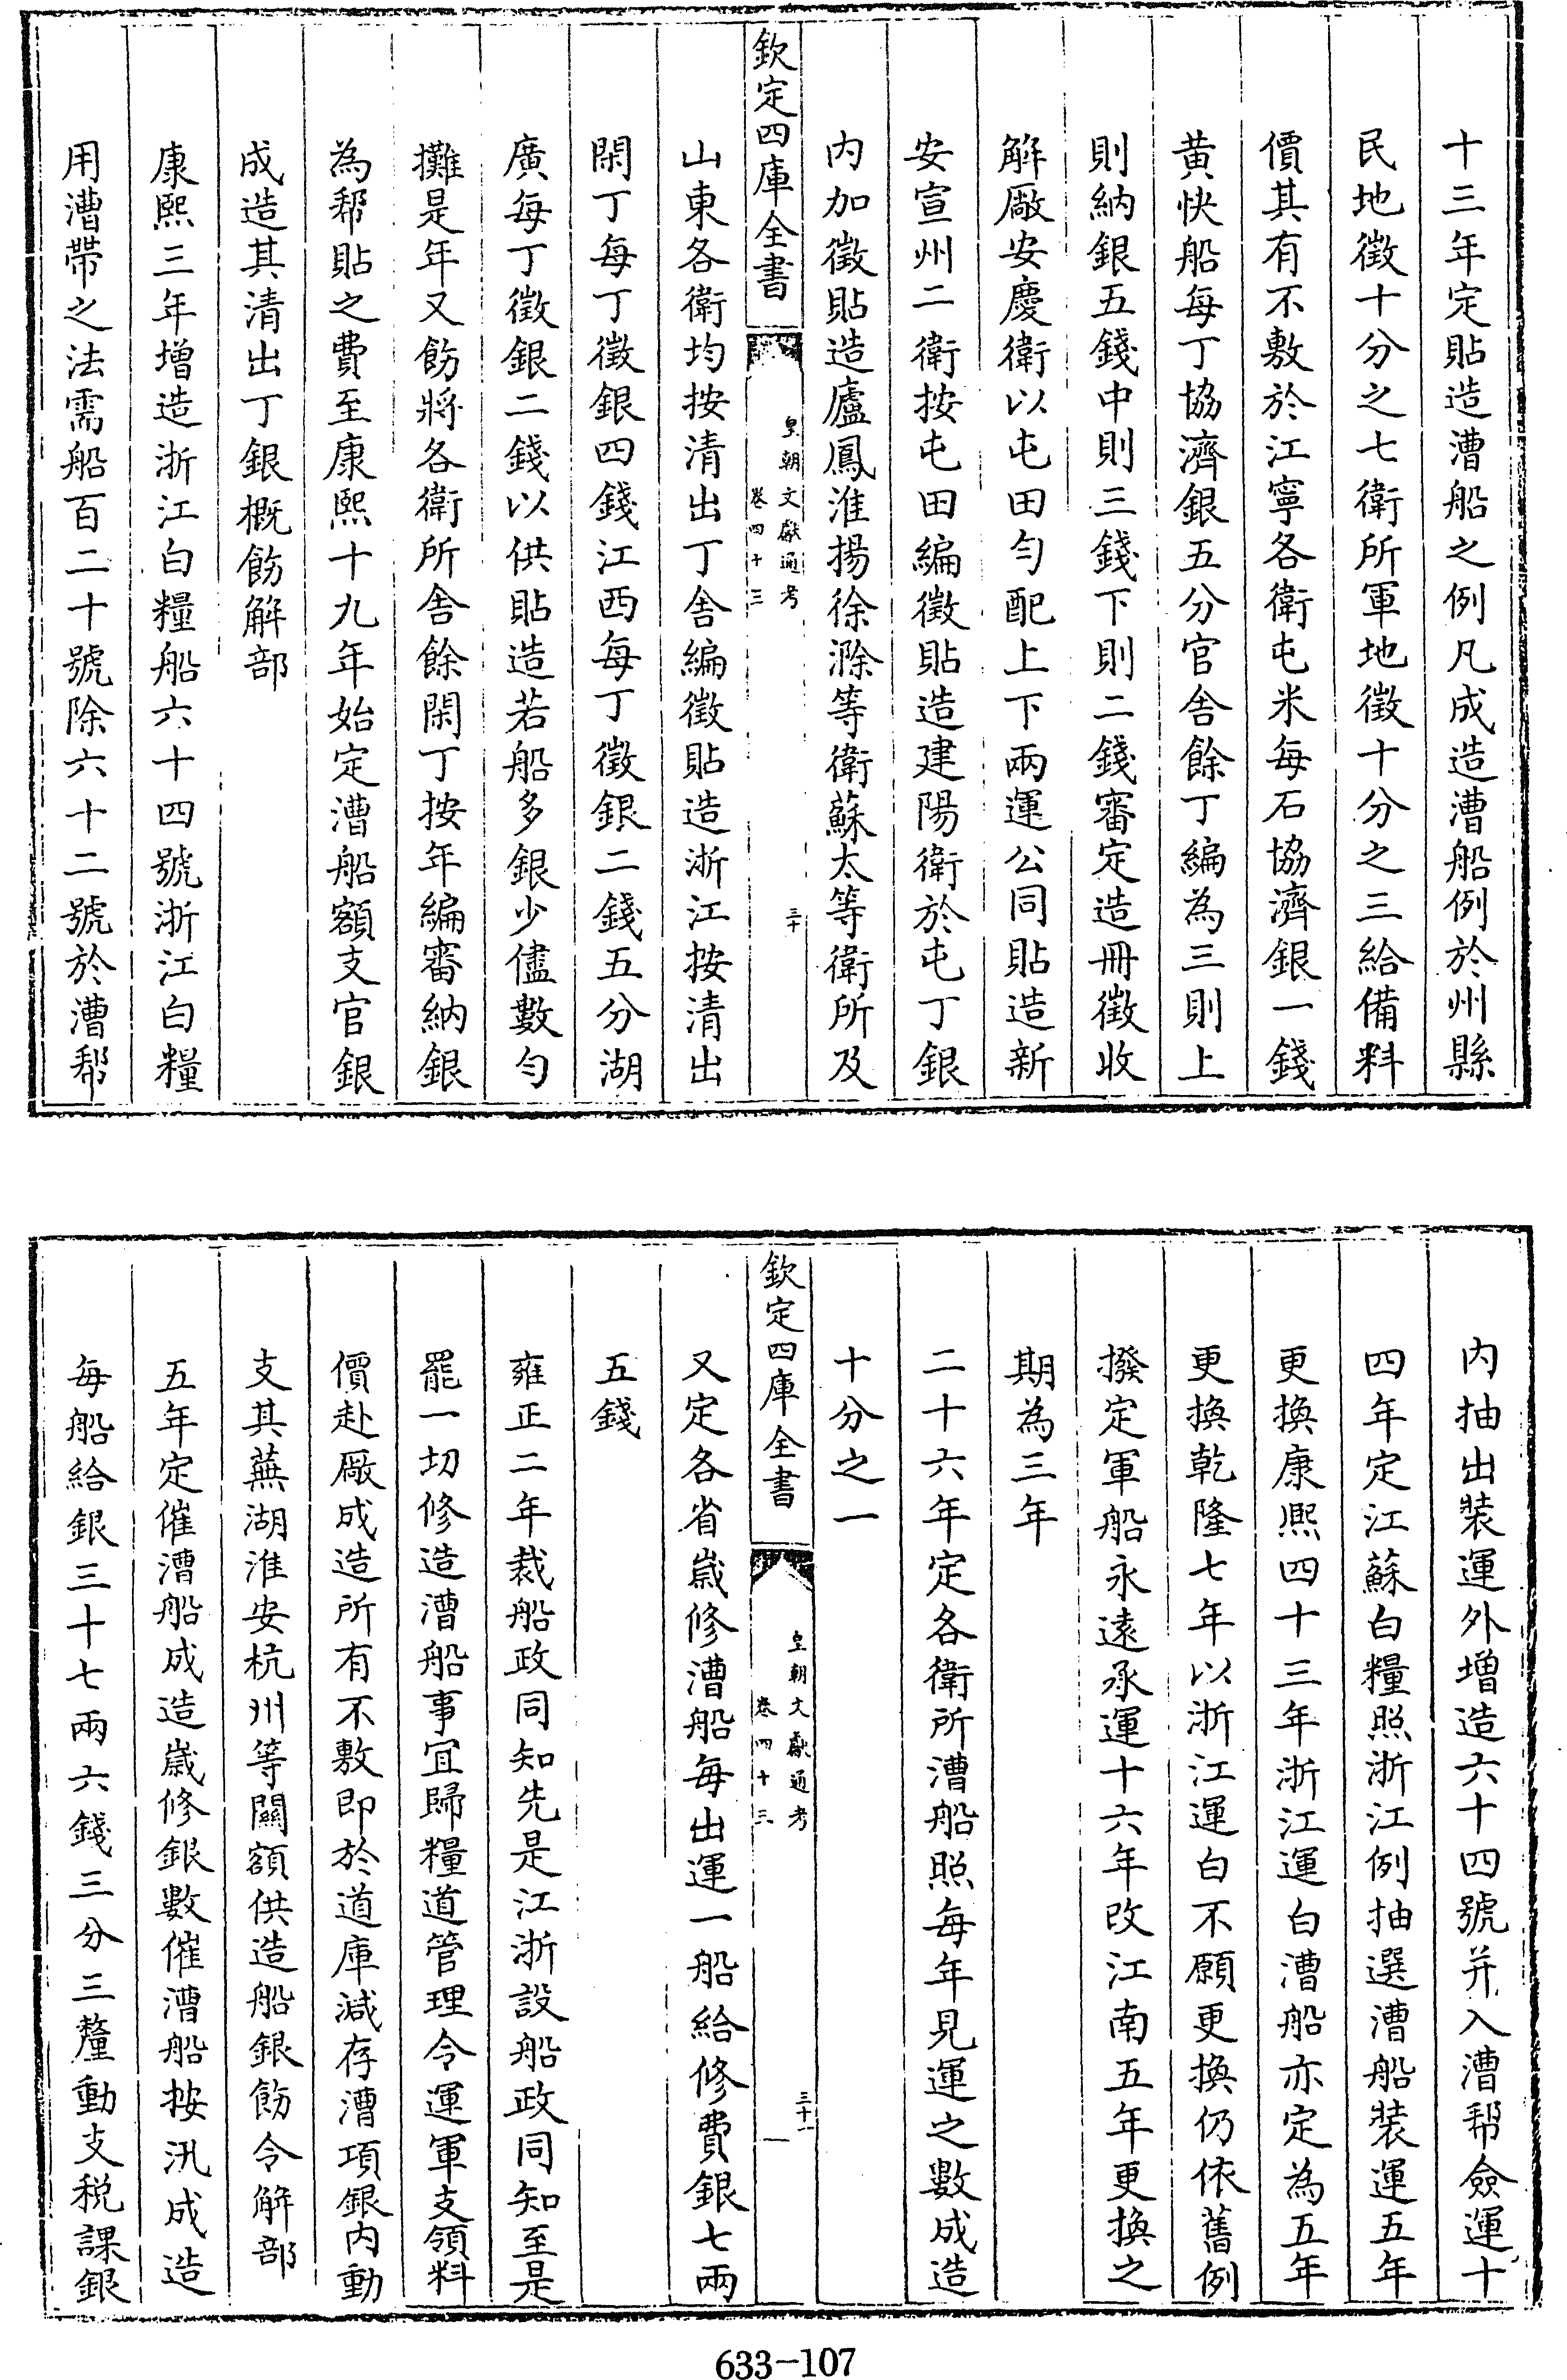 十三年定貼造漕船之例凡成造漕船例於州縣
民地徵十分之七衛所軍地徵十分之三給備料
價其有不敷於江寧各衛屯米每石協濟銀一錢
黄快船每丁協濟銀五分官舍餘丁編為三則上
則納銀五錢中則三錢下則二錢審定造冊徵收
解廠安慶衛以屯田勻配上下兩運公同貼造新
安宣州二衛按屯田編徵貼造建陽衛於屯丁銀
内加徵貼造廬鳳淮揚徐滁等衛蘇太等衛所及
欽定四庫全書
皇朝文獻通考
卷四十三
三十
山東各衛均按清出丁舍編徵貼造浙江按清出
閑丁每丁徵銀四錢江西每丁徵銀二錢五分湖
廣每丁徵銀二錢以供貼造若船多銀少儘數勻
攤是年又飭將各衛所舍餘閑丁按年編審納銀
為幇貼之費至康熙十九年始定漕船額支官銀
成造其清出丁銀概飭解部
康熙三年增造浙江白糧船六十四號浙江白糧
用漕帶之法需船百二十號除六十二號於漕幇
内抽出裝運外増造六十四號并入漕幇僉運十
四年定江蘇白糧照浙江例抽選漕船裝運五年
更換康熙四十三年浙江運白漕船亦定為五年
更換乾隆七年以浙江運白不願更換仍依舊例
撥定軍船永遠承運十六年改江南五年更換之
期為三年
二十六年定各衛所漕船照每年見運之數成造
十分之一
欽定四庫全書
皇朝文獻通考
卷四十三
三十一
又定各省歲修漕船每出運一船給修費銀七兩
五錢
雍正二年裁船政同知先是江浙設船政同知至是
罷一切修造漕船事宜歸糧道管理令運軍支領料
價赴廠成造所有不敷即於道庫減存漕項銀内動
支其蕪湖淮安杭州等關額供造船銀飭令解部
五年定催漕船成造歲修銀數催漕船按汛成造
每船給銀三十七兩六錢三分三釐動支税課銀
633-107